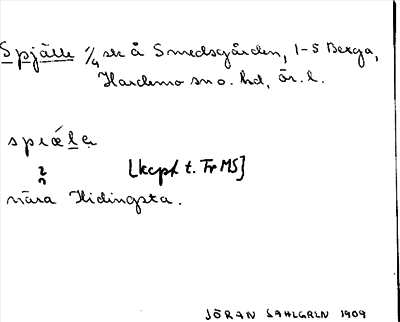 Spjälle 1/4 sk å Smedsgården, 1-5 Berga,
Hardemo sn o. hd, Ör. l.
spiǽlę
[kopf t. Fr MS]
nära Hidingsta.
JÖRAN SAHLGREN 1909